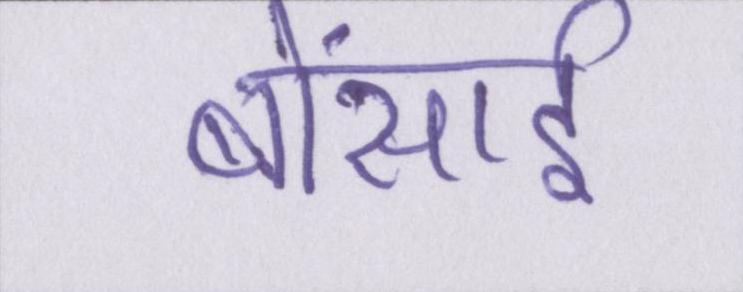 बोंसाई